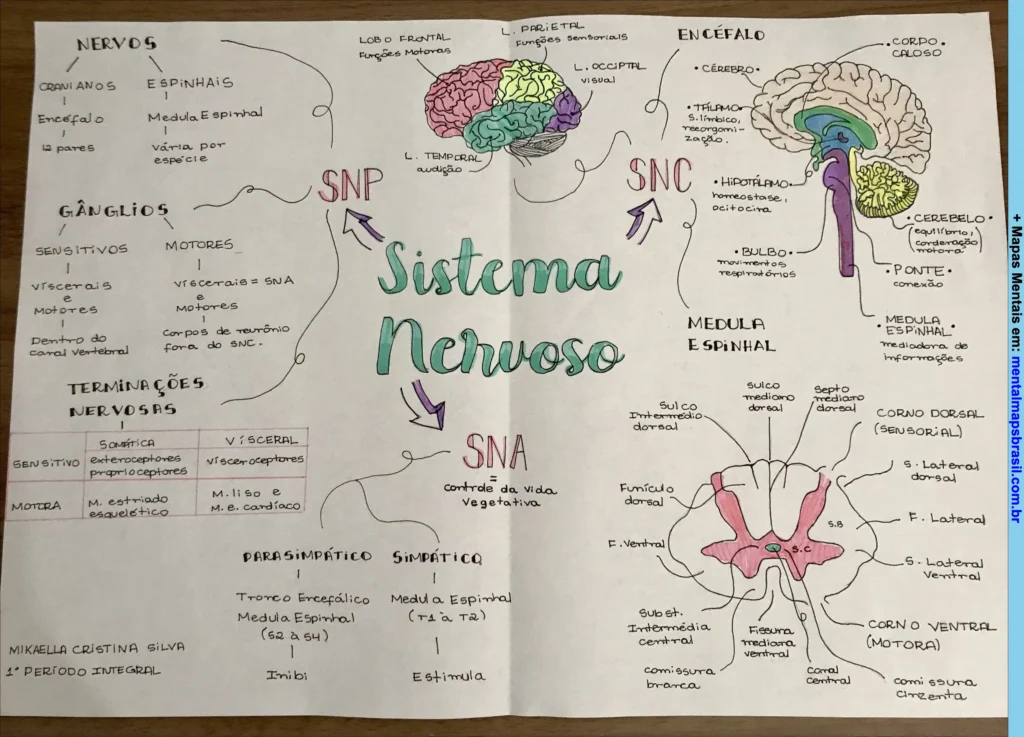 Sistema
Nervoso
SNP
NERVOS
CRANIANOS
Encéfalo
12 pares
ESPINHAIS
Medula Espinhal
vária por
espécie
GÂNGLIOS
SENSITIVOS
viscerais
e
Motores
Dentro do
canal vertebral
MOTORES
viscerais = SNA
e
Motores
Corpos de neurônio
fora do SNC.
TERMINAÇÕES
NERVOSAS
SOMÁTICA
VISCERAL
SENSITIVO
exteroceptores
proprioceptores
vísceroceptores
MOTORA
M. estriado
esquelético
M. liso e
M. e. cardíaco
LOBO FRONTAL
Funções Motoras
L. PARIETAL
Funções Sensoriais
L. OCCIPTAL
visual
L. TEMPORAL
audição
SNC
ENCÉFALO
• CÉREBRO •
• CORPO •
CALOSO
• TÁLAMO •
S. límbico,
reeorgomi-
zação.
• HIPOTÁLAMO •
homeostase,
ocitocina
• BULBO •
movimentos
respiratórios
• CEREBELO •
(equilíbrio,
corderação
motora)
• PONTE •
conexão
• MEDULA
ESPINHAL •
mediadora de
informações
MEDULA
ESPINHAL
Sulco
Intermédio
dorsal
Sulco
mediano
dorsal
Septo
mediano
dorsal
CORNO DORSAL
(SENSORIAL)
S. Lateral
dorsal
Funículo
dorsal
F. Lateral
S.B
S.C
F. Ventral
S. Lateral
Ventral
Subst.
Intermédia
central
Fissura
mediana
ventral
CORNO VENTRAL
(MOTORA)
comissura
branca
canal
central
comissura
cinzenta
SNA
=
controle da vida
vegetativa
PARASIMPÁTICO
Tronco Encefálico
Medula Espinhal
(S2 à S4)
Inibi
SIMPÁTICO
Medula Espinhal
(T1 à T2)
Estimula
MIKAELLA CRISTINA SILVA
1° PERÍODO INTEGRAL
+ Mapas Mentais em: mentalmapsbrasil.com.br